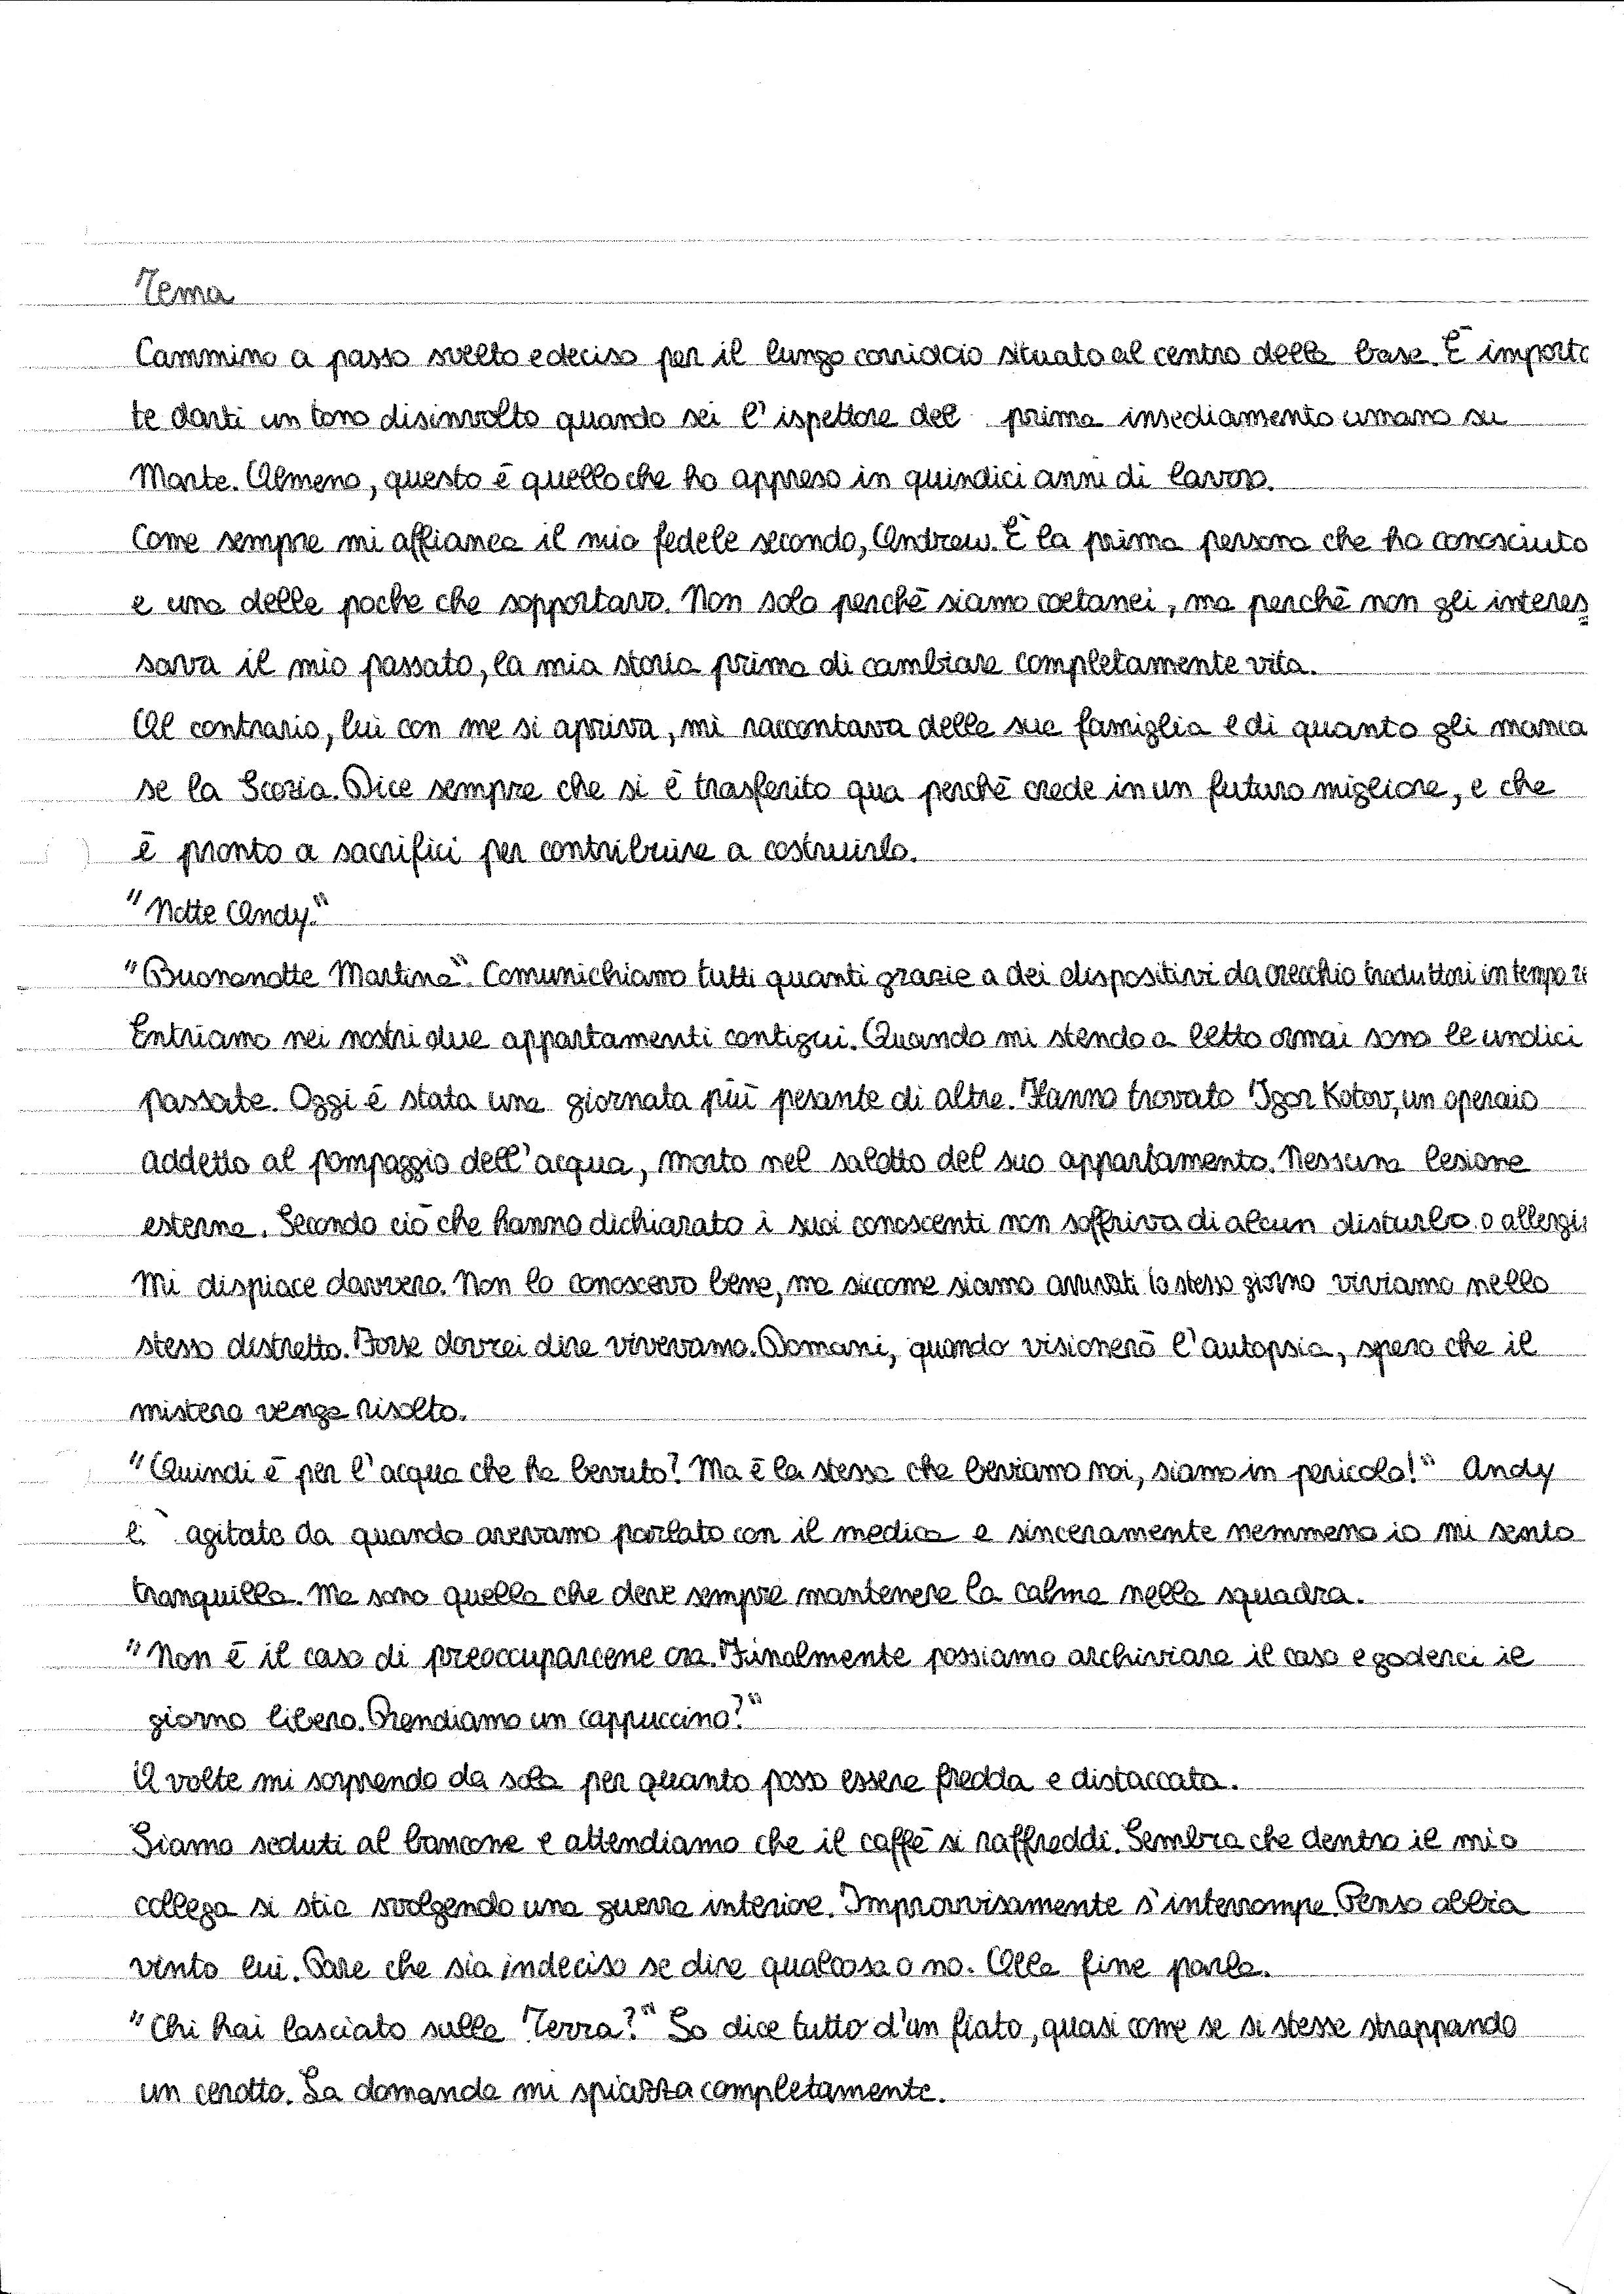 Tema
Cammino a passo svelto e deciso per il lungo corridoio situato al centro della base. È importa
te darti un tono disinvolto quando sei l'ispettore del primo insediamento umano su
Marte. Almeno, questo è quello che ho appreso in quindici anni di lavoro.
Come sempre mi affianca il mio fedele secondo, Andrew. È la prima persona che ho conosciuto
e una delle poche che sopportavo. Non solo perchè siamo coetanei, ma perchè non gli interes
sava il mio passato, la mia storia prima di cambiare completamente vita.
Al contrario, lui con me si apriva, mi raccontava della sua famiglia e di quanto gli manca
se la Scozia. Dice sempre che si è trasferito qua perchè crede in un futuro migliore, e che
è pronto a sacrifici per contribuire a costruirlo.
"Notte Andy."
"Buonanotte Martina". Comunichiamo tutti quanti grazie a dei dispositivi da orecchio traduttori in tempo re
Entriamo nei nostri due appartamenti contigui. Quando mi stendo a letto ormai sono le undici
passate. Oggi è stata una giornata più pesante di altre. Hanno trovato Igor Kotov, un operaio
addetto al pompaggio dell'acqua, morto nel salotto del suo appartamento. Nessuna lesione
esterna. Secondo ciò che hanno dichiarato i suoi conoscenti non soffriva di alcun disturbo o allergi
Mi dispiace davvero. Non lo conoscevo bene, ma siccome siamo arrivati lo stesso giorno viviamo nello
stesso distretto. Forse dovrei dire vivevamo. Domani, quando visionerò l'autopsia, spero che il
mistero venga risolto.
"Quindi è per l'acqua che ha bevuto? Ma è la stessa che beviamo noi, siamo in pericolo!" Andy
è agitato da quando avevamo parlato con il medico e sinceramente nemmeno io mi sento
tranquilla. Ma sono quella che deve sempre mantenere la calma nella squadra.
"Non è il caso di preoccuparcene ora. Finalmente possiamo archiviare il caso e goderci il
giorno libero. Prendiamo un cappuccino?"
A volte mi sorprendo da sola per quanto posso essere fredda e distaccata.
Siamo seduti al bancone e attendiamo che il caffè si raffreddi. Sembra che dentro il mio
collega si stia svolgendo una guerra interiore. Improvvisamente s'interrompe. Penso abbia
vinto lui. Pare che sia indeciso se dire qualcosa o no. Alla fine parla.
"Chi hai lasciato sulla Terra?" Lo dice tutto d'un fiato, quasi come se si stesse strappando
un cerotto. La domanda mi spiazza completamente.